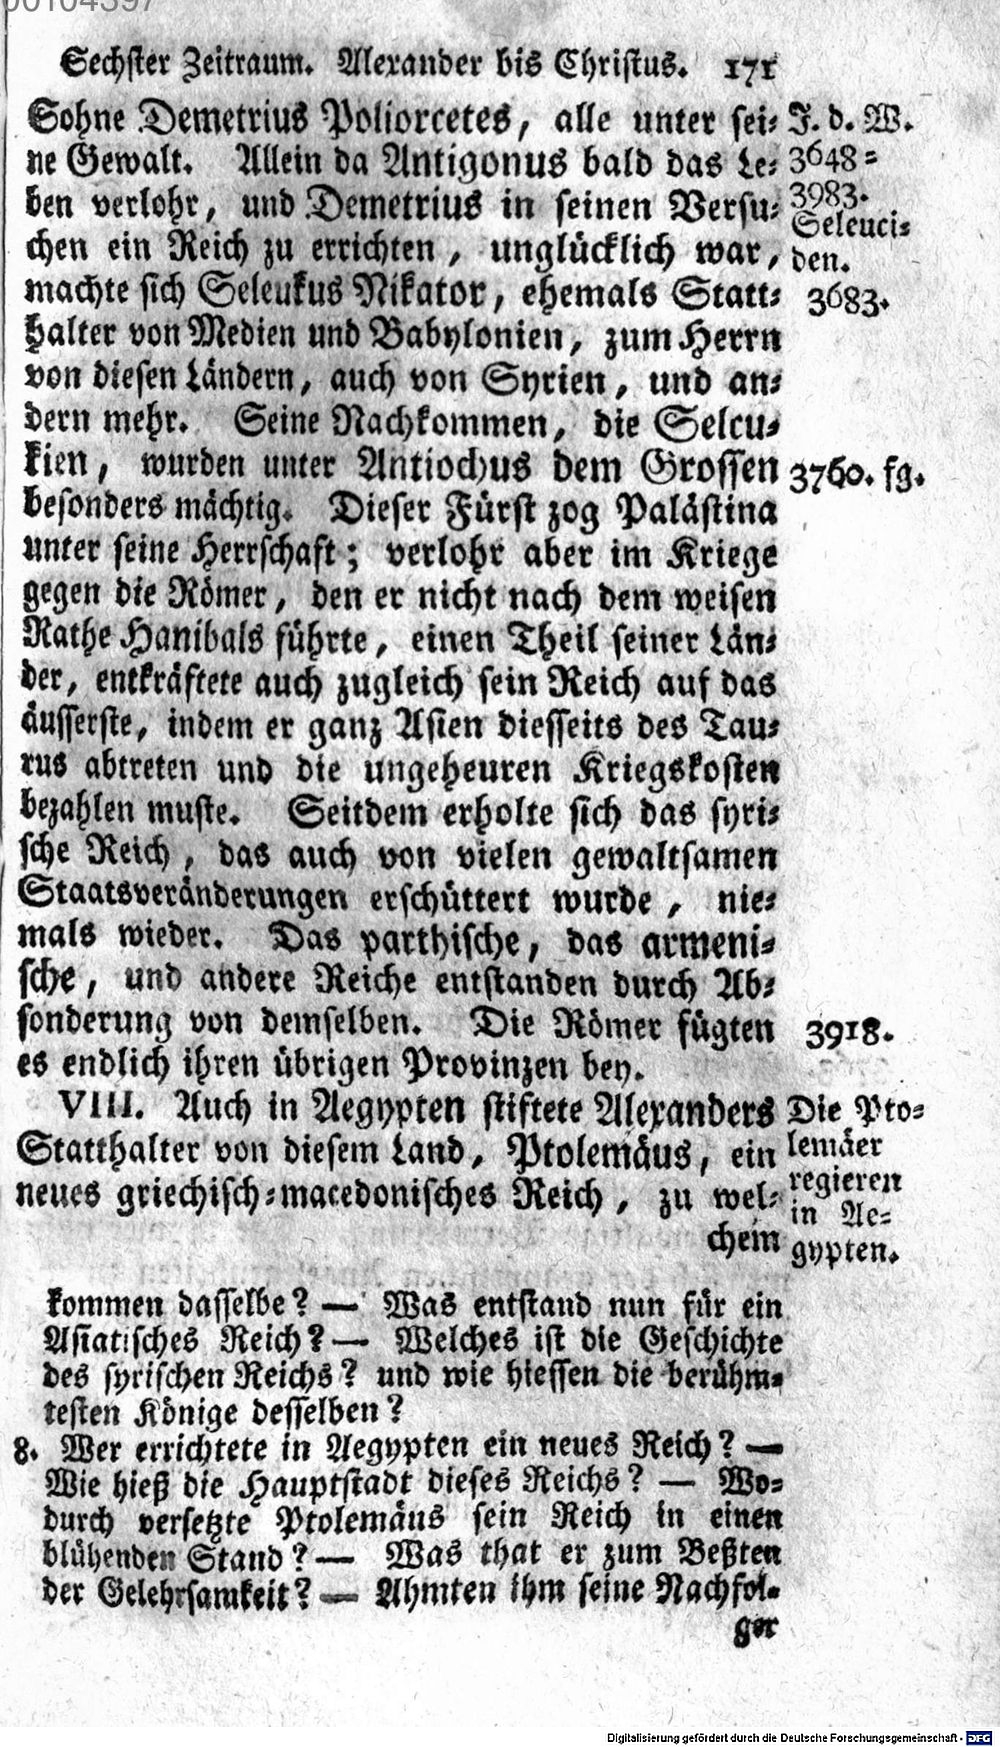 00104397
Sechster Zeitraum. Alexander bis Christus. 171
Sohne Demetrius Poliorcetes, alle unter sei⸗
ne Gewalt. Allein da Antigonus bald das Le⸗
ben verlohr, und Demetrius in seinen Versu⸗
chen ein Reich zu errichten, unglücklich war,
machte sich Seleukus Nikator, ehemals Statt⸗
halter von Medien und Babylonien, zum Herrn
von diesen Ländern, auch von Syrien, und an⸗
dern mehr. Seine Nachkommen, die Seleu⸗
kien, wurden unter Antiochus dem Grossen
besonders mächtig. Dieser Fürst zog Palästina
unter seine Herrschaft; verlohr aber im Kriege
gegen die Römer, den er nicht nach dem weisen
Rathe Hanibals führte, einen Theil seiner Län⸗
der, entkräftete auch zugleich sein Reich auf das
äusserste, indem er ganz Asien diesseits des Tau⸗
rus abtreten und die ungeheuren Kriegskosten
bezahlen muste. Seitdem erholte sich das syri⸗
sche Reich, das auch von vielen gewaltsamen
Staatsveränderungen erschüttert wurde, nie⸗
mals wieder. Das parthische, das armeni⸗
sche, und andere Reiche entstanden durch Ab⸗
sonderung von demselben. Die Römer fügten
es endlich ihren übrigen Provinzen bey.
VIII. Auch in Aegypten stiftete Alexanders
Statthalter von diesem Land, Ptolemäus, ein
neues griechisch⸗macedonisches Reich, zu wel⸗
chem
J. d. W.
3648⸗
3983.
Seleuci⸗
den.
3683.
3760. fg.
3918.
Die Pto⸗
lemäer
regieren
in Ae⸗
gypten.
kommen dasselbe? — Was entstand nun für ein
Asiatisches Reich? — Welches ist die Geschichte
des syrischen Reichs? und wie hiessen die berühm⸗
testen Könige desselben?
8. Wer errichtete in Aegypten ein neues Reich? —
Wie hieß die Hauptstadt dieses Reichs? — Wo⸗
durch versetzte Ptolemäus sein Reich in einen
blühenden Stand? — Was that er zum Beßten
der Gelehrsamkeit? — Ahmten ihm seine Nachfol⸗
ger
Digitalisierung gefördert durch die Deutsche Forschungsgemeinschaft - DFG